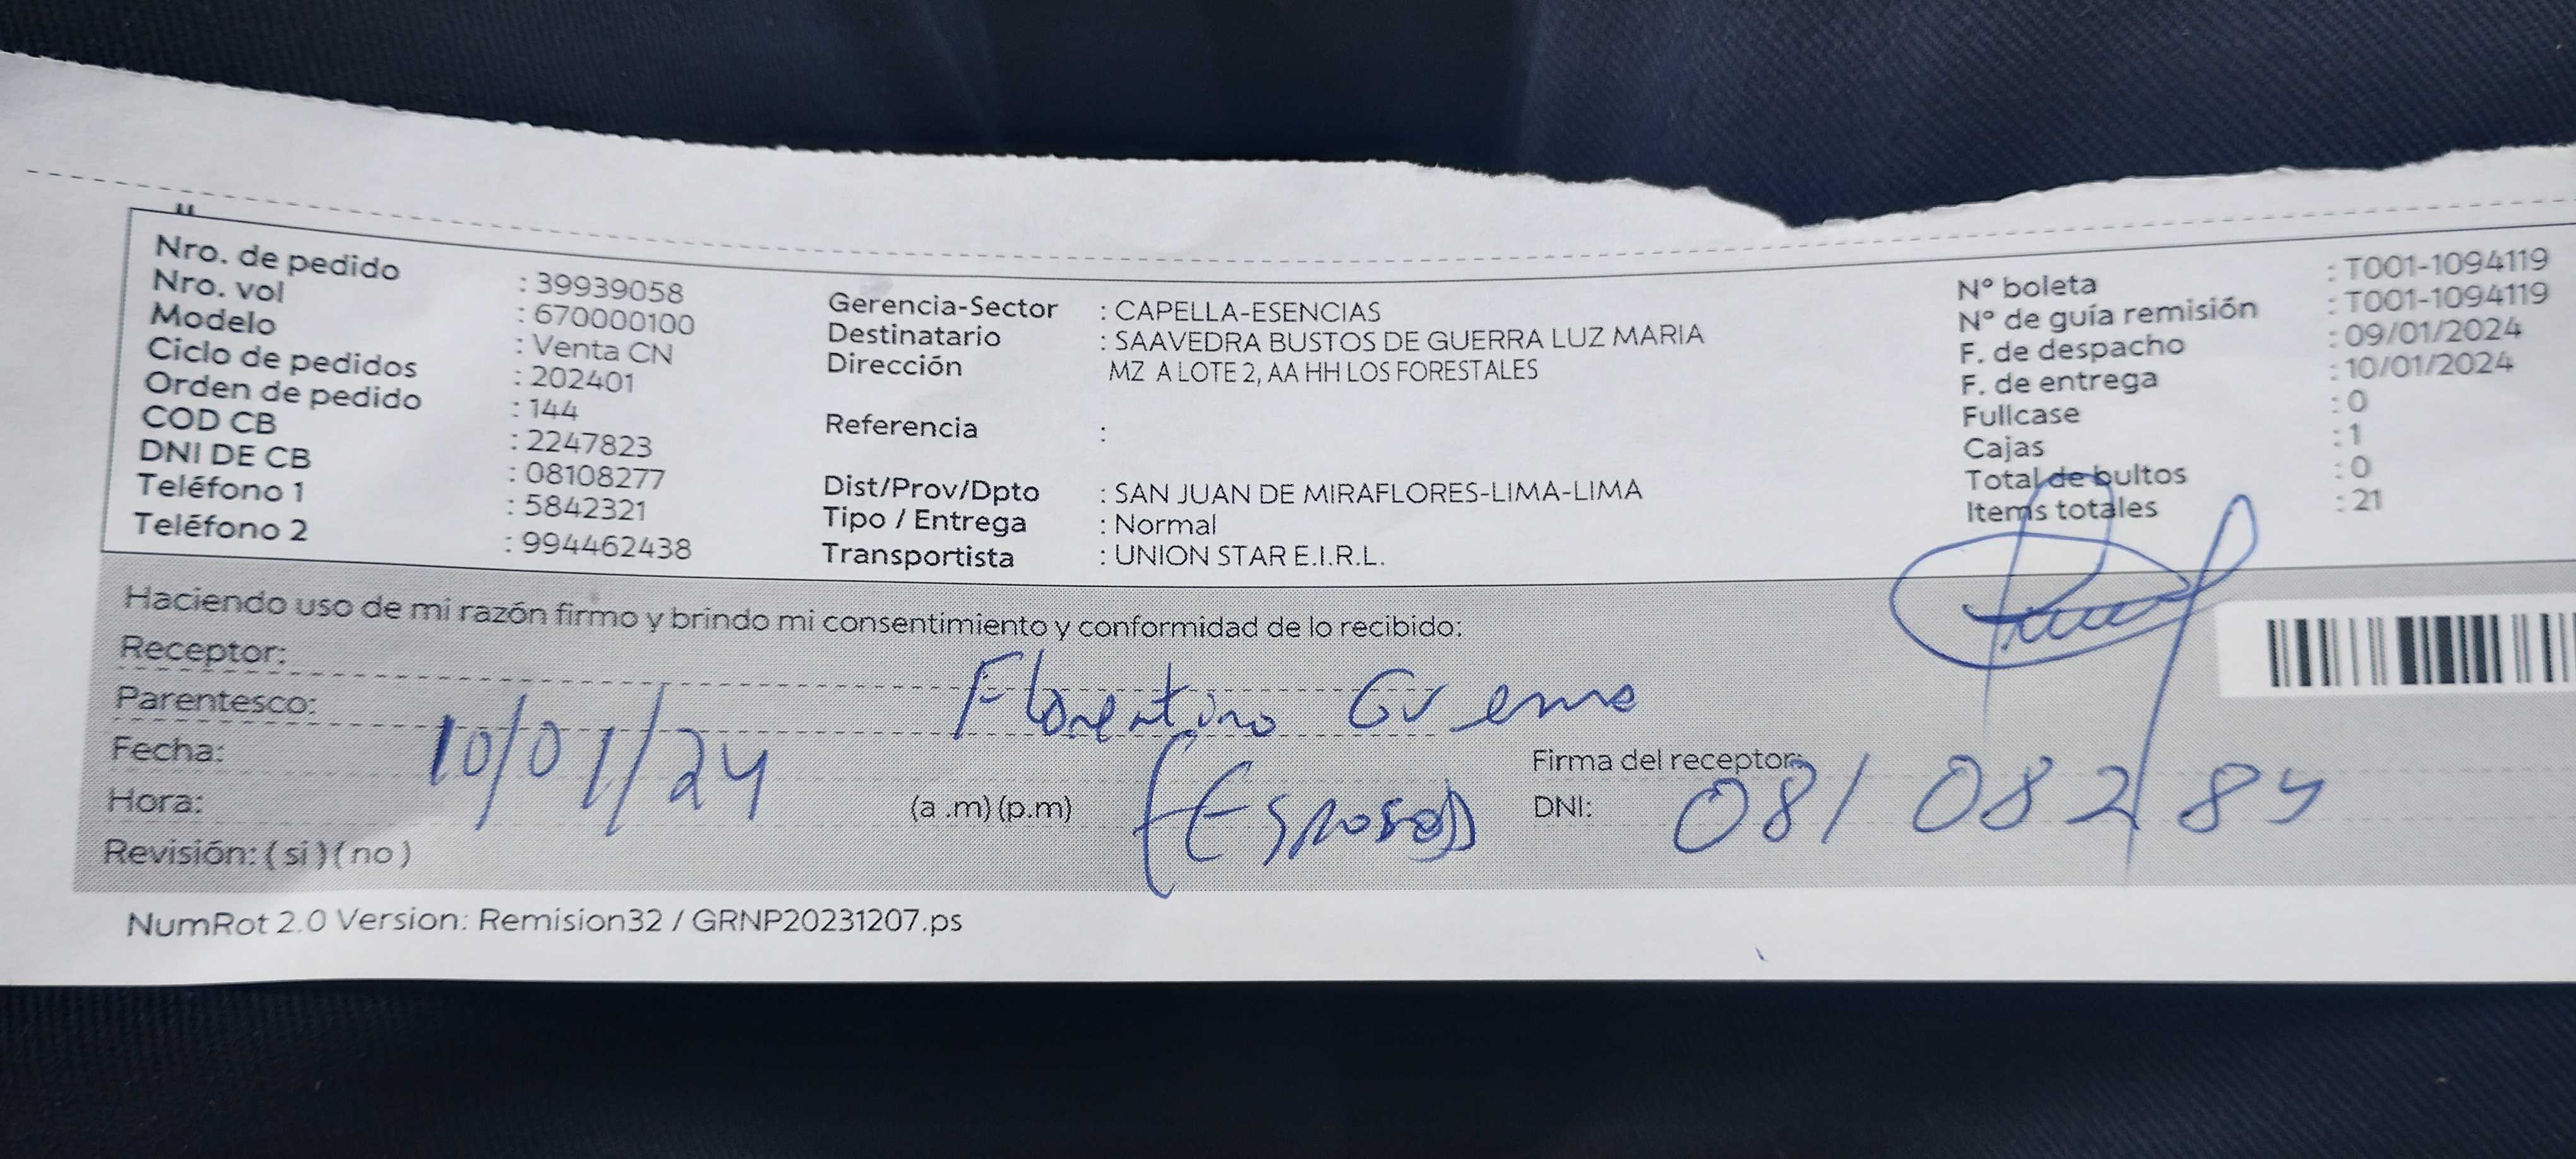 Nro. de pedido : 39939058
Nro. vol : 670000100
Modelo : Venta CN
Ciclo de pedidos : 202401
Orden de pedido : 144
COD CB : 2247823
DNI DE CB : 08108277
Teléfono 1 : 5842321
Teléfono 2 : 994462438
Gerencia-Sector : CAPELLA-ESENCIAS
Destinatario : SAAVEDRA BUSTOS DE GUERRA LUZ MARIA
Dirección MZ A LOTE 2, AA HH LOS FORESTALES
Referencia :
Dist/Prov/Dpto : SAN JUAN DE MIRAFLORES-LIMA-LIMA
Tipo / Entrega : Normal
Transportista : UNION STAR E.I.R.L.
N° boleta : T001-1094119
N° de guía remisión : T001-1094119
F. de despacho : 09/01/2024
F. de entrega : 10/01/2024
Fullcase : 0
Cajas : 1
Total de bultos : 0
Items totales : 21
Haciendo uso de mi razón firmo y brindo mi consentimiento y conformidad de lo recibido:
Receptor:
Parentesco: Florentino
Fecha: 10/01/24 Firma del receptor:
Hora: (a .m) (p.m) (Esposo) DNI: 08108284
Revisión: ( si ) ( no )
NumRot 2.0 Version: Remision32 / GRNP20231207.ps